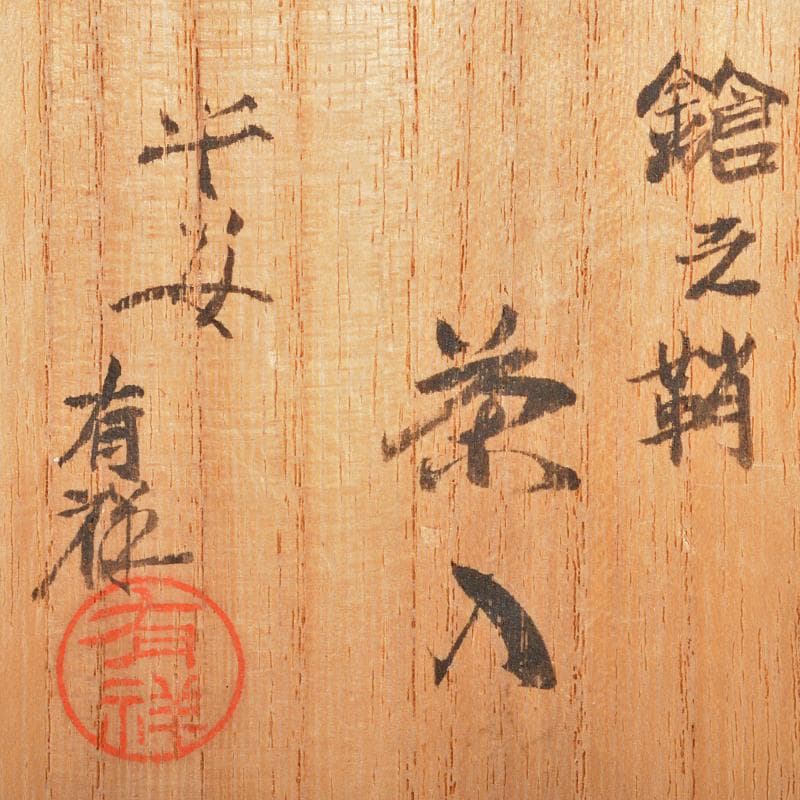 鎗之鞘
茶入
平安
有祥
有祥